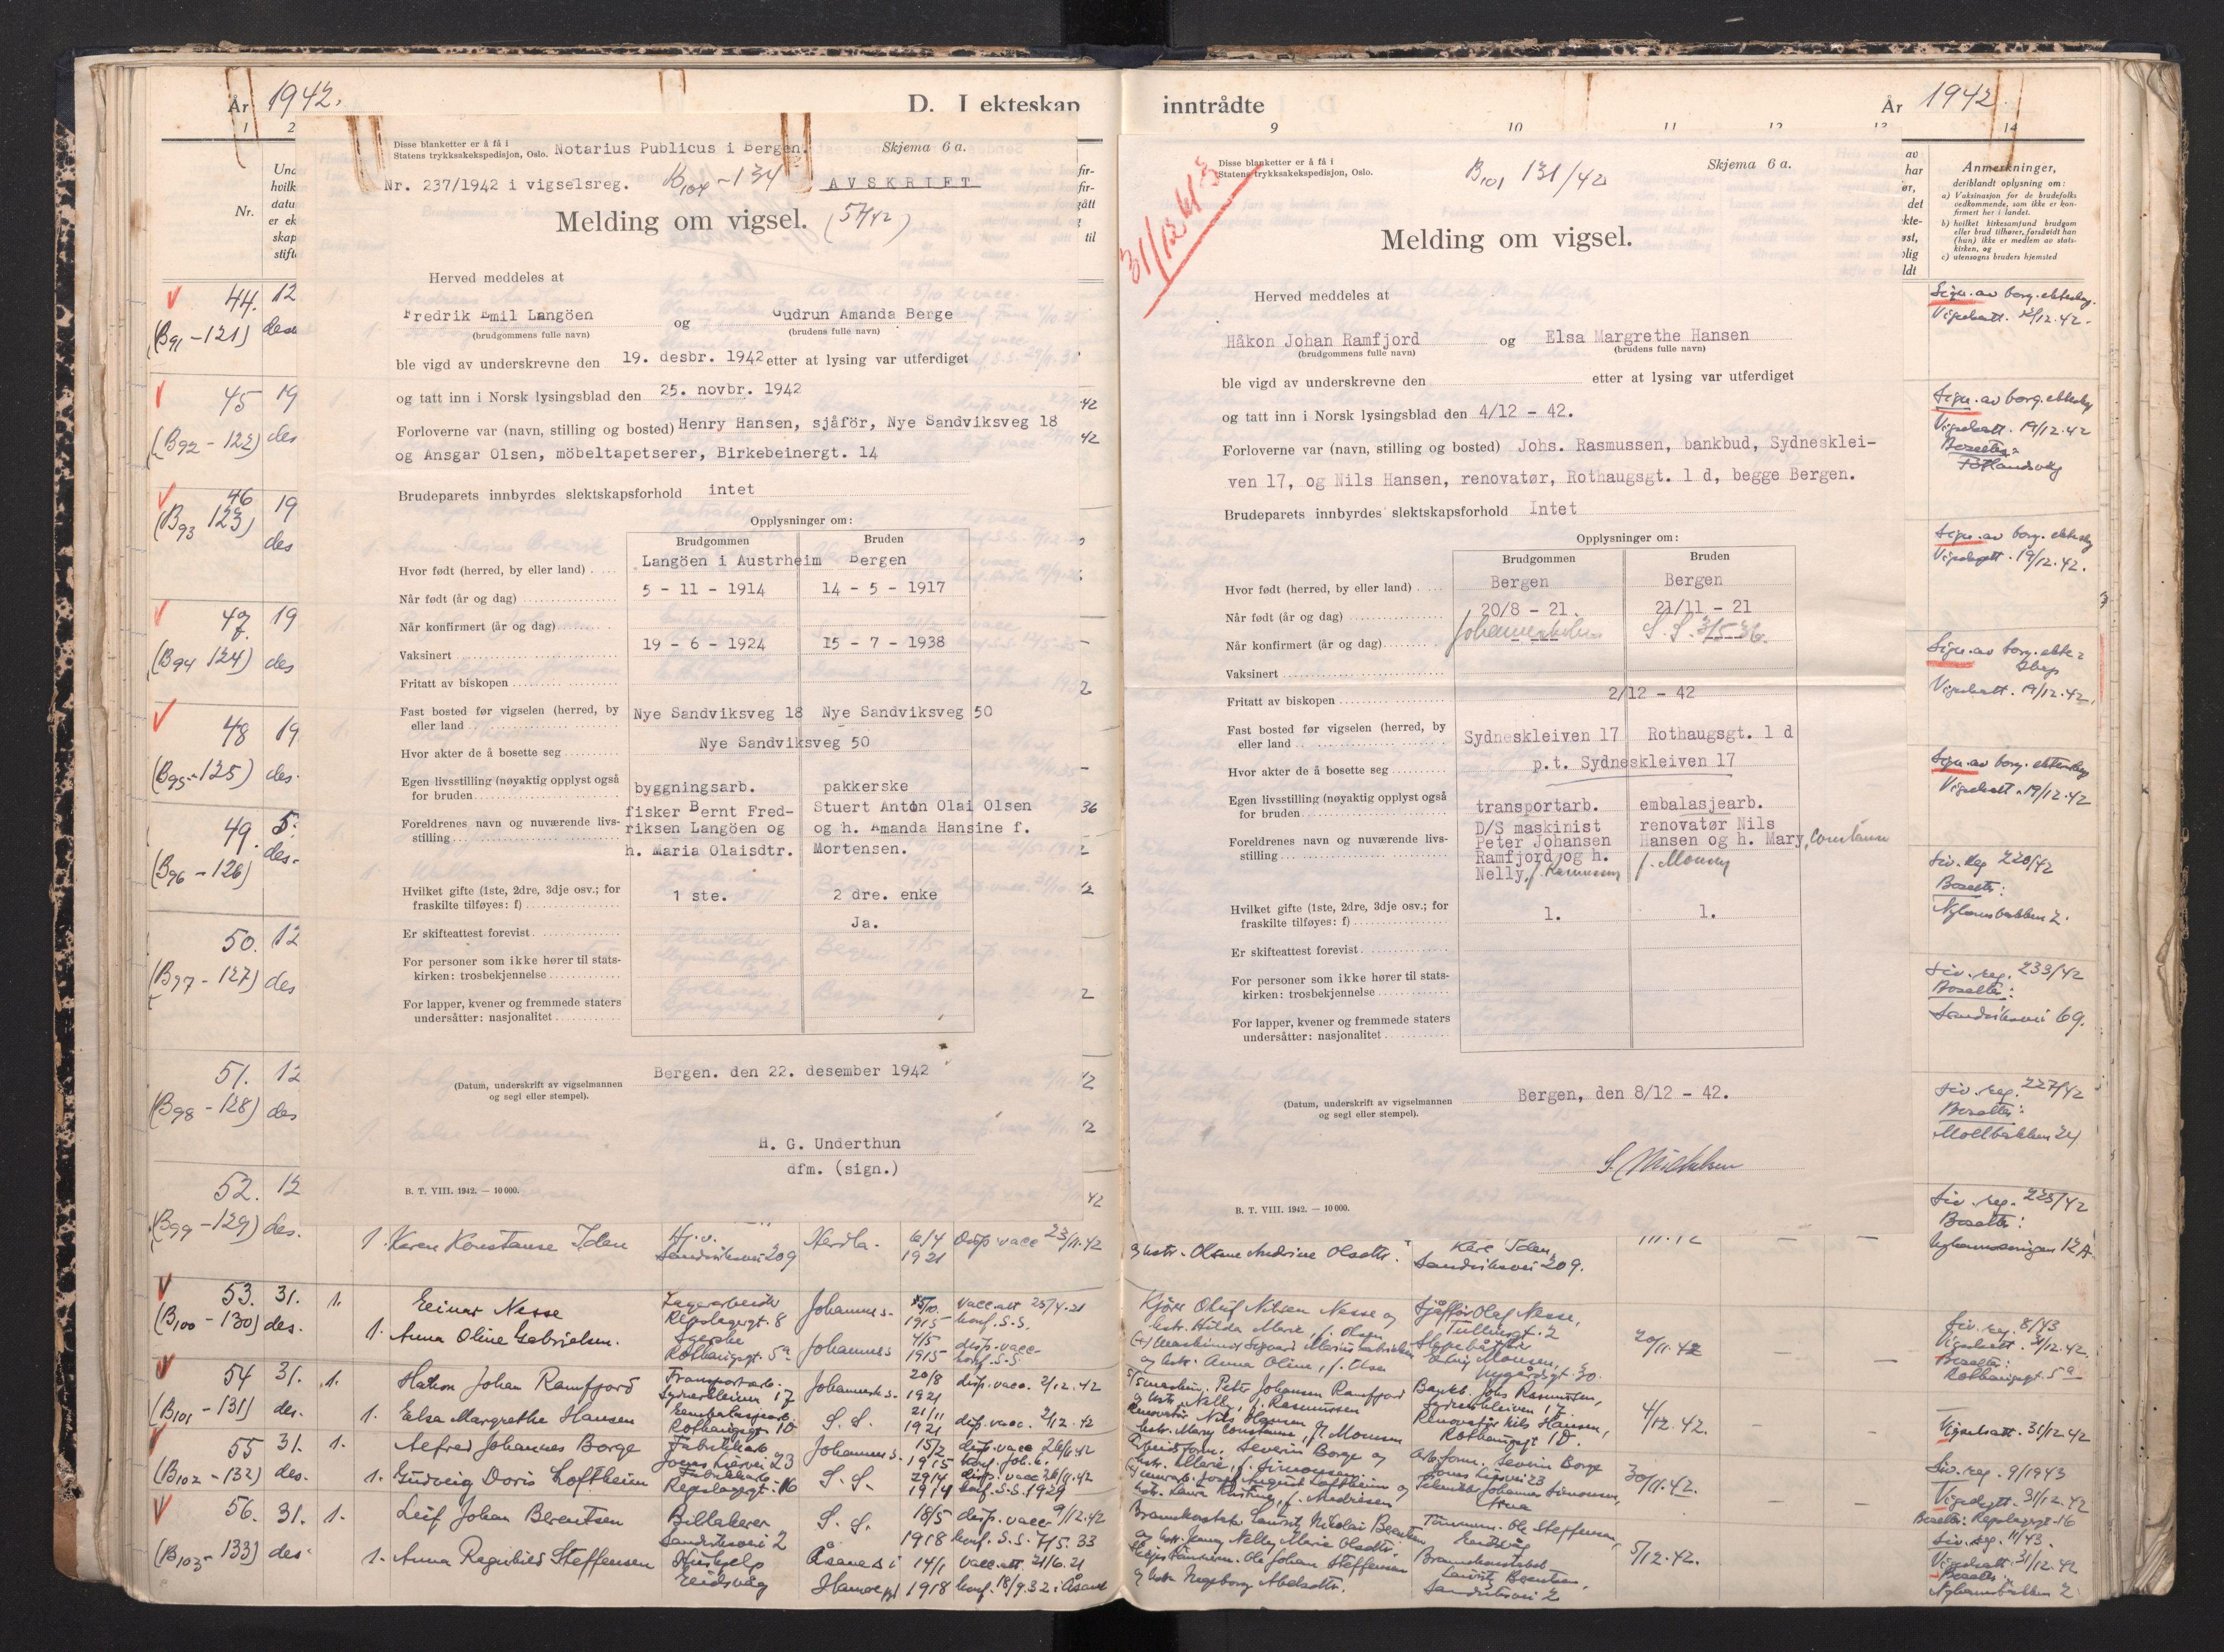 År 1942.
D. I ekteskap
inntrådte
År 1942.
1 2
9 10 11 12 13 14
Nr.
Und
hvilk
datu
er ek
skap
stift
Disse blanketter er å få i
Statens trykksakekspedisjon, Oslo.
Notarius Publicus i Bergen.
Skjema 6 a.
Nr. 237/1942 i vigselsreg.
B104 - 134
AVSKRIFT
Melding om vigsel. (57/42)
Herved meddeles at
Fredrik Emil Langöen og Gudrun Amanda Berge
(brudgommens fulle navn) (brudens fulle navn)
ble vigd av underskrevne den 19. desbr. 1942 etter at lysing var utferdiget
og tatt inn i Norsk lysingsblad den 25. novbr. 1942
Forloverne var (navn, stilling og bosted) Henry Hansen, sjåför, Nye Sandviksveg 18
og Ansgar Olsen, möbeltapetserer, Birkebeinergt. 14
Brudeparets innbyrdes slektskapsforhold intet
Opplysninger om:
Brudgommen Bruden
Hvor født (herred, by eller land) Langöen i Austrheim Bergen
Når født (år og dag) 5 - 11 - 1914 14 - 5 - 1917
Når konfirmert (år og dag)
Vaksinert 19 - 6 - 1924 15 - 7 - 1938
Fritatt av biskopen
Fast bosted før vigselen (herred, by
eller land Nye Sandviksveg 18 Nye Sandviksveg 50
Hvor akter de å bosette seg Nye Sandviksveg 50
Egen livsstilling (nøyaktig opplyst også
for bruden byggningsarb. pakkerske
Foreldrenes navn og nuværende livs-
stilling
fisker Bernt Fred-
riksen Langöen og
h. Maria Olaisdtr.
Stuert Anton Olai Olsen
og h. Amanda Hansine f.
Mortensen.
Hvilket gifte (1ste, 2dre, 3dje osv.; for
fraskilte tilføyes: f) 1 ste. 2 dre. enke
Er skifteattest forevist Ja.
For personer som ikke hører til stats-
kirken: trosbekjennelse
For lapper, kvener og fremmede staters
undersåtter: nasjonalitet
Bergen. den 22. desember 1942
(Datum, underskrift av vigselmannen
og segl eller stempel).
H. G. Underthun
dfm. (sign.)
B. T. VIII. 1942. — 10 000.
Disse blanketter er å få i
Statens trykksakekspedisjon, Oslo.
B101 131/42
Skjema 6 a.
31/12 kl 3
Melding om vigsel.
Herved meddeles at
Håkon Johan Ramfjord og Elsa Margrethe Hansen
(brudgommens fulle navn) (brudens fulle navn)
ble vigd av underskrevne den etter at lysing var utferdiget
og tatt inn i Norsk lysingsblad den 4/12 - 42.
Forloverne var (navn, stilling og bosted) Johs. Rasmussen, bankbud, Sydnesklei-
ven 17, og Nils Hansen, renovatør, Rothaugsgt. 1 d, begge Bergen.
Brudeparets innbyrdes slektskapsforhold Intet
Opplysninger om:
Brudgommen Bruden
Hvor født (herred, by eller land) Bergen Bergen
Når født (år og dag) 20/8 - 21. 21/11 - 21
Når konfirmert (år og dag) Johanneskirken S. S. 3/5 36.
Vaksinert
Fritatt av biskopen 2/12 - 42
Fast bosted før vigselen (herred, by
eller land Sydneskleiven 17 Rothaugsgt. 1 d
Hvor akter de å bosette seg p.t. Sydneskleiven 17
Egen livsstilling (nøyaktig opplyst også
for bruden transportarb. embalasjearb.
Foreldrenes navn og nuværende livs-
stilling
D/S maskinist
Peter Johansen
Ramfjord og h.
Nelly, f. Rasmussen
renovatør Nils
Hansen og h. Mary, Constanse
f. Monsen
Hvilket gifte (1ste, 2dre, 3dje osv.; for
fraskilte tilføyes: f) 1. 1.
Er skifteattest forevist
For personer som ikke hører til stats-
kirken: trosbekjennelse
For lapper, kvener og fremmede staters
undersåtter: nasjonalitet
Bergen, den 8/12 - 42.
(Datum, underskrift av vigselmannen
og segl eller stempel).
B. T. VIII. 1942. — 10 000.
Anmerkninger,
deriblandt oplysning om:
a) Vaksinasjon for de brudefolks
vedkommende, som ikke er kon-
firmert her i landet.
b) hvilket kirkesamfund brudgom
eller brud tilhører, forsåvidt han
(hun) ikke er medlem av stats-
kirken, og
c) utensogns bruders hjemsted
44. 12
(B91 - 121) des
45 19
(B92 - 122) des
46 19
(B93 123) des
47. 19
(B94 124) des
48 19
(B95 - 125) des.
49. 5.
(B96 - 126) des.
50. 12
(B97 - 127) des
51. 12
(B98 - 128) des
52. 12
(B99 - 129) des.
Sign. av borg. ekteskap.
Vigselsatt. 12/12. 42.
Sign. av borg. ekteskap
Vigselsatt. 19/12. 42
Bosetter:
Sign. av borg. ekteskap
Vigselsatt. 19/12. 42.
Sign. av borg. ekte-
skap
Vigselsatt. 19/12. 42.
Sign. av borg. ekteskap
Vigselsatt. 19/12. 42
Siv. reg. 220/42
Bosetter:
Nyhavnsbakken 2.
Siv. reg. 233/42
Bosetter:
Sandviksvei 69.
Siv. reg. 227/42
Bosetter:
Møllbakken 24
Siv. reg. 225/42
Bosetter:
Nyhavnssvingen 12 A.
1. Karen Konstanse Iden Sandviksvei 209 Herdla. 6/4 1921 Disp. vacc 23/11. 42
og hstr. Olsine Andrine Olsdtr. Sandviksvei 209.
53. 31. 1. Einar Nesse Lagerarbeider Repslagergt. 8 Johannes. 15/10. 1915 vacc. att 25/4. 21 konf. S. S.
(B100 - 130) des. 1. Anna Oline Gabrielsen. Rothaugsgt. 5a Johannes 4/5 1915 disp. vacc. konf. S. S.
Kjører Oluf Nilsen Nesse og hstr. Hulda Marie, f. Olsen Sjåffør Olaf Nesse, Tullinsgt. 2
og hstr. Anna Oline, f. Olsen Nygårdsgt. 30. 20/11. 42
Siv. reg. 8/43
Vigselsatt. 31/12. 42.
Bosetter:
Rothaugsgt. 5a
54 31. 1. Håkon Johan Ramfjord Transportarb. Sydneskleiven 17 Johannesk. 20/8 1921 disp. vacc. 2/12. 42
(B101 - 131) des. 1. Elsa Margrethe Hansen Rothaugsgt. 1D S. S. 21/11 1921 disp. vacc. 2/12. 42
Peter Johansen Ramfjord og hstr. Nelly, f. Rasmussen Bankb. Johs Rasmussen, Sydneskleiven 17.
Renovatør Nils Hansen og hstr. Mary Constanse, f. Monsen Renovatør Nils Hansen, Rothaugsgt 1D. 4/12. 42.
Vigselsatt. 31/12. 42
55 31. 1. Alfred Johannes Borge Fabrikkarb. Jonas Liesvei 23 Johannes. 15/2 1915 disp. vacc 26/11. 42 konf. Joh. k.
(B102 - 132) des. 1. Gudveig Doris Loftheim Fabrikkarb. Repslagergt. 16 S. S. 29/4 1914 disp. vacc 26/11. 42 konf. S. S. 1929
Arbeidsform. Severin Borge og hstr. Marie, f. Simonsen. Arb. form. Severin Borge Jonas Liesvei 23
Josef August Loftheim og hstr. Laura Kristine, f. Andresen Johannes Simonsen, 30/11. 42.
Siv. reg. 9/1943
Vigselsatt. 31/12. 42
Bosetter: Repslagergt. 16
56. 31. 1. Leif Johan Berentsen Billakerer Sandviksvei 2 S. S. 18/5 1918 disp. vacc 9/12. 42 konf. S. S. 7/5. 33
(B103 - 133) des. 1. Anna Regulied Steffensen Hushjelp Eidsvåg Åsane i Hamre pgd 14/1 1918 vacc. att. 21/6. 21 konf. 18/9. 32 i Åsane
Laurits Nikolai Berentsen og hstr. Jenny Nelly Marie Olsdtr. Tømmerm. Ole Steffensen, Eidsvåg
Ole Johan Steffensen og hstr. Ingeborg Abelsdtr. Laurits Berentsen, Sandviksvei 2 5/12. 42.
Siv. reg. 11/43.
Vigselsatt. 31/12. 42
Bosetter:
Nyhavnsbakken 2